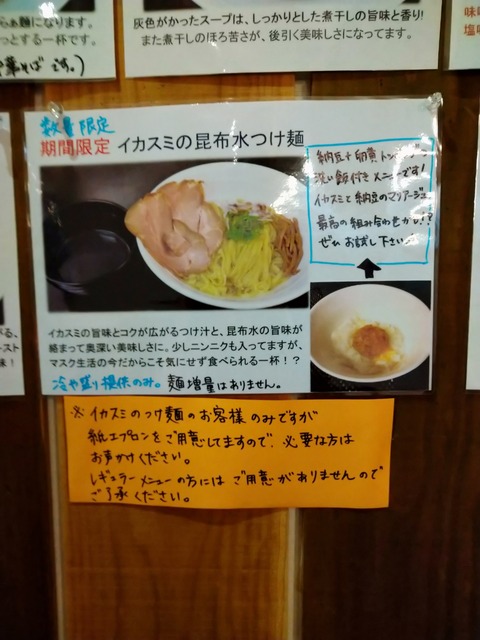 らぁ麺になります。
っとする一杯です。
華そば です。)
灰色がかったスープは、しっかりとした煮干しの旨味と香り!
また煮干しのほろ苦さが、後引く美味しさになってます。
味
塩
数量限定
期間限定 イカスミの昆布水つけ麺
納豆+卵黄
洗い飯付きメニューです!
イカスミと納豆のマリアージュ
最高の組み合わせかも!?
ぜひ お試し下さい
イカスミの旨味とコクが広がるつけ汁と、昆布水の旨味が
絡まって奥深い美味しさに。少しニンニクも入ってますが、
マスク生活の今だからこそ気にせず食べられる一杯!?
冷や盛り提供のみ。麺増量はありません。
※イカスミのつけ麺のお客様のみですが
紙エプロンをご用意してますので、必要な方は
お声かけください。
レギュラーメニューの方には ご用意がありませんので
ご了承ください。